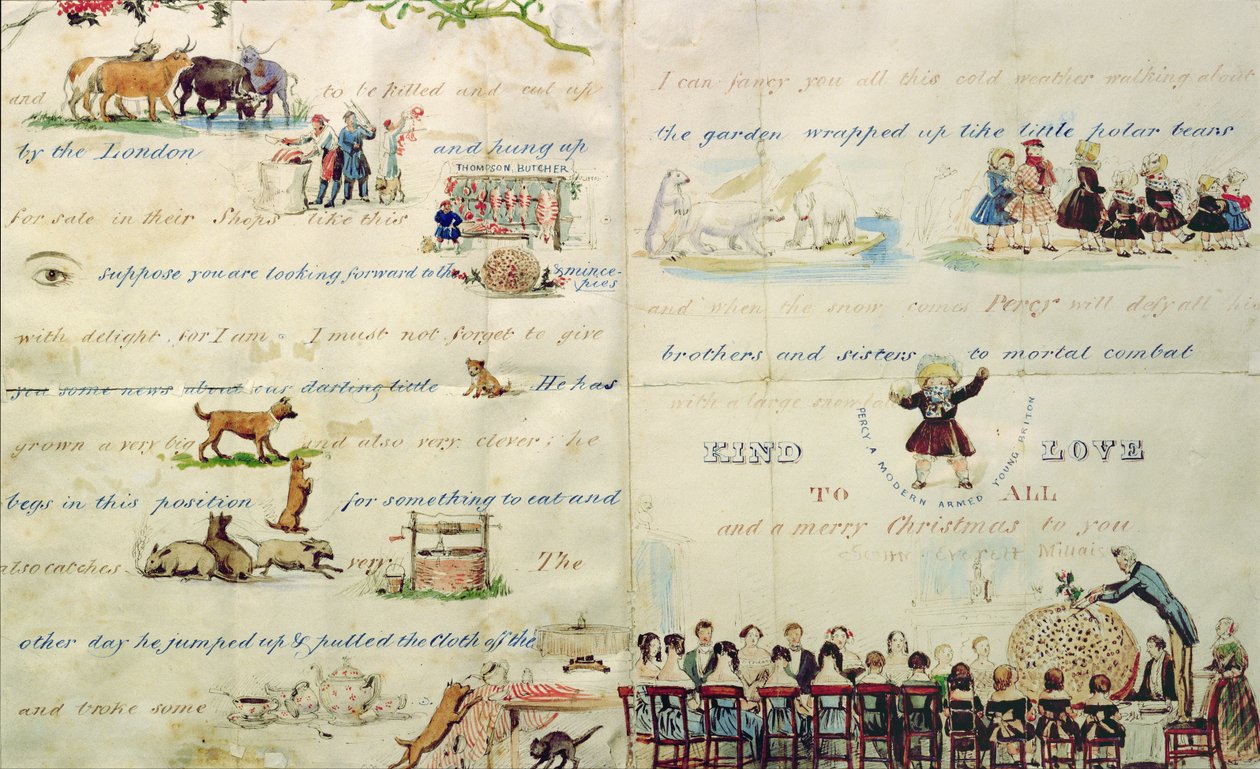 and to be killed and cut up
by the London and hung up
THOMPSON, BUTCHER
for sale in their Shops like this
suppose you are looking forward to the & mince-
pies
with delight, for I am. I must not forget to give
you some news about our darling little He has
grown a very big and also very clever; he
begs in this position for something to eat and
also catches very The
other day he jumped up & pulled the cloth off the
and broke some
I can fancy you all this cold weather walking about
the garden wrapped up like little polar bears
and when the snow comes Percy will defy all his
brothers and sisters to mortal combat
with a large snowball
PERCY A MODERN ARMED YOUNG BRITON
KIND LOVE
TO ALL
and a merry Christmas to you
Everett Millais